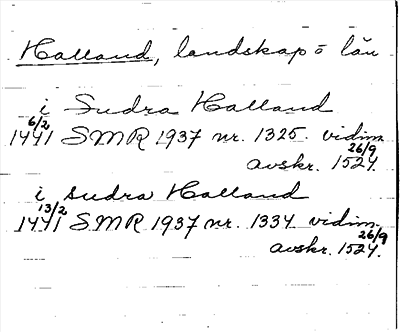 Halland, landskap o län
i Sudra Halland
6/2
1441 SMR 1937 nr. 1325. vidim.
26/9
avskr. 1524.
i sudra Halland
13/2
1441 SMR 1937 nr. 1334 vidim.
26/9
avskr. 1524.